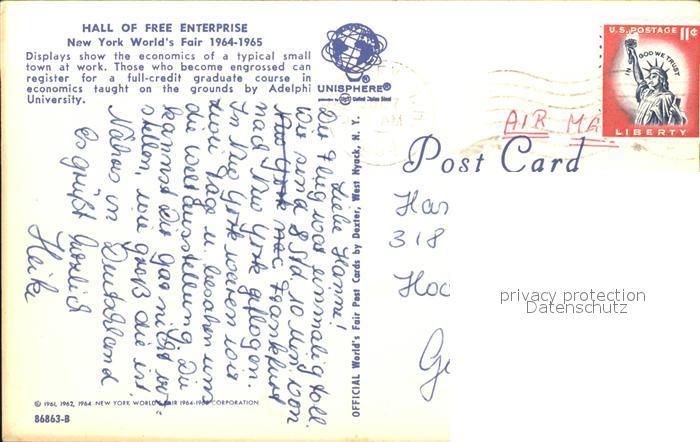 HALL OF FREE ENTERPRISE
New York World's Fair 1964-1965
Displays show the economics of a typical small
town at work. Those who become engrossed can
register for a full-credit graduate course in
economics taught on the grounds by Adelphi
University.
UNISPHERE®
presented by USS United States Steel
U.S. POSTAGE 11¢
IN GOD WE TRUST
LIBERTY
AIR MA
Post Card
Liebe Hanni!
Der Flug war einmalig toll.
Wir sind 8 Std 10 Min von
New York nac Frankfurt
nach New York geflogen.
In New York waren wir
zwei Tage u. besahen uns
die Weltausstellung. Du
kannst Dir gar nicht vor-
stellen, wie groß die ist.
Näheres in Deutschland
Es grüßt herzlich
Heike
OFFICIAL World's Fair Post Cards by Dexter, West Nyack, N. Y.
Han
318
Hoc
Ge
privacy protection
Datenschutz
© 1961, 1962, 1964 NEW YORK WORLD'S FAIR 1964-1965 CORPORATION
86863-B